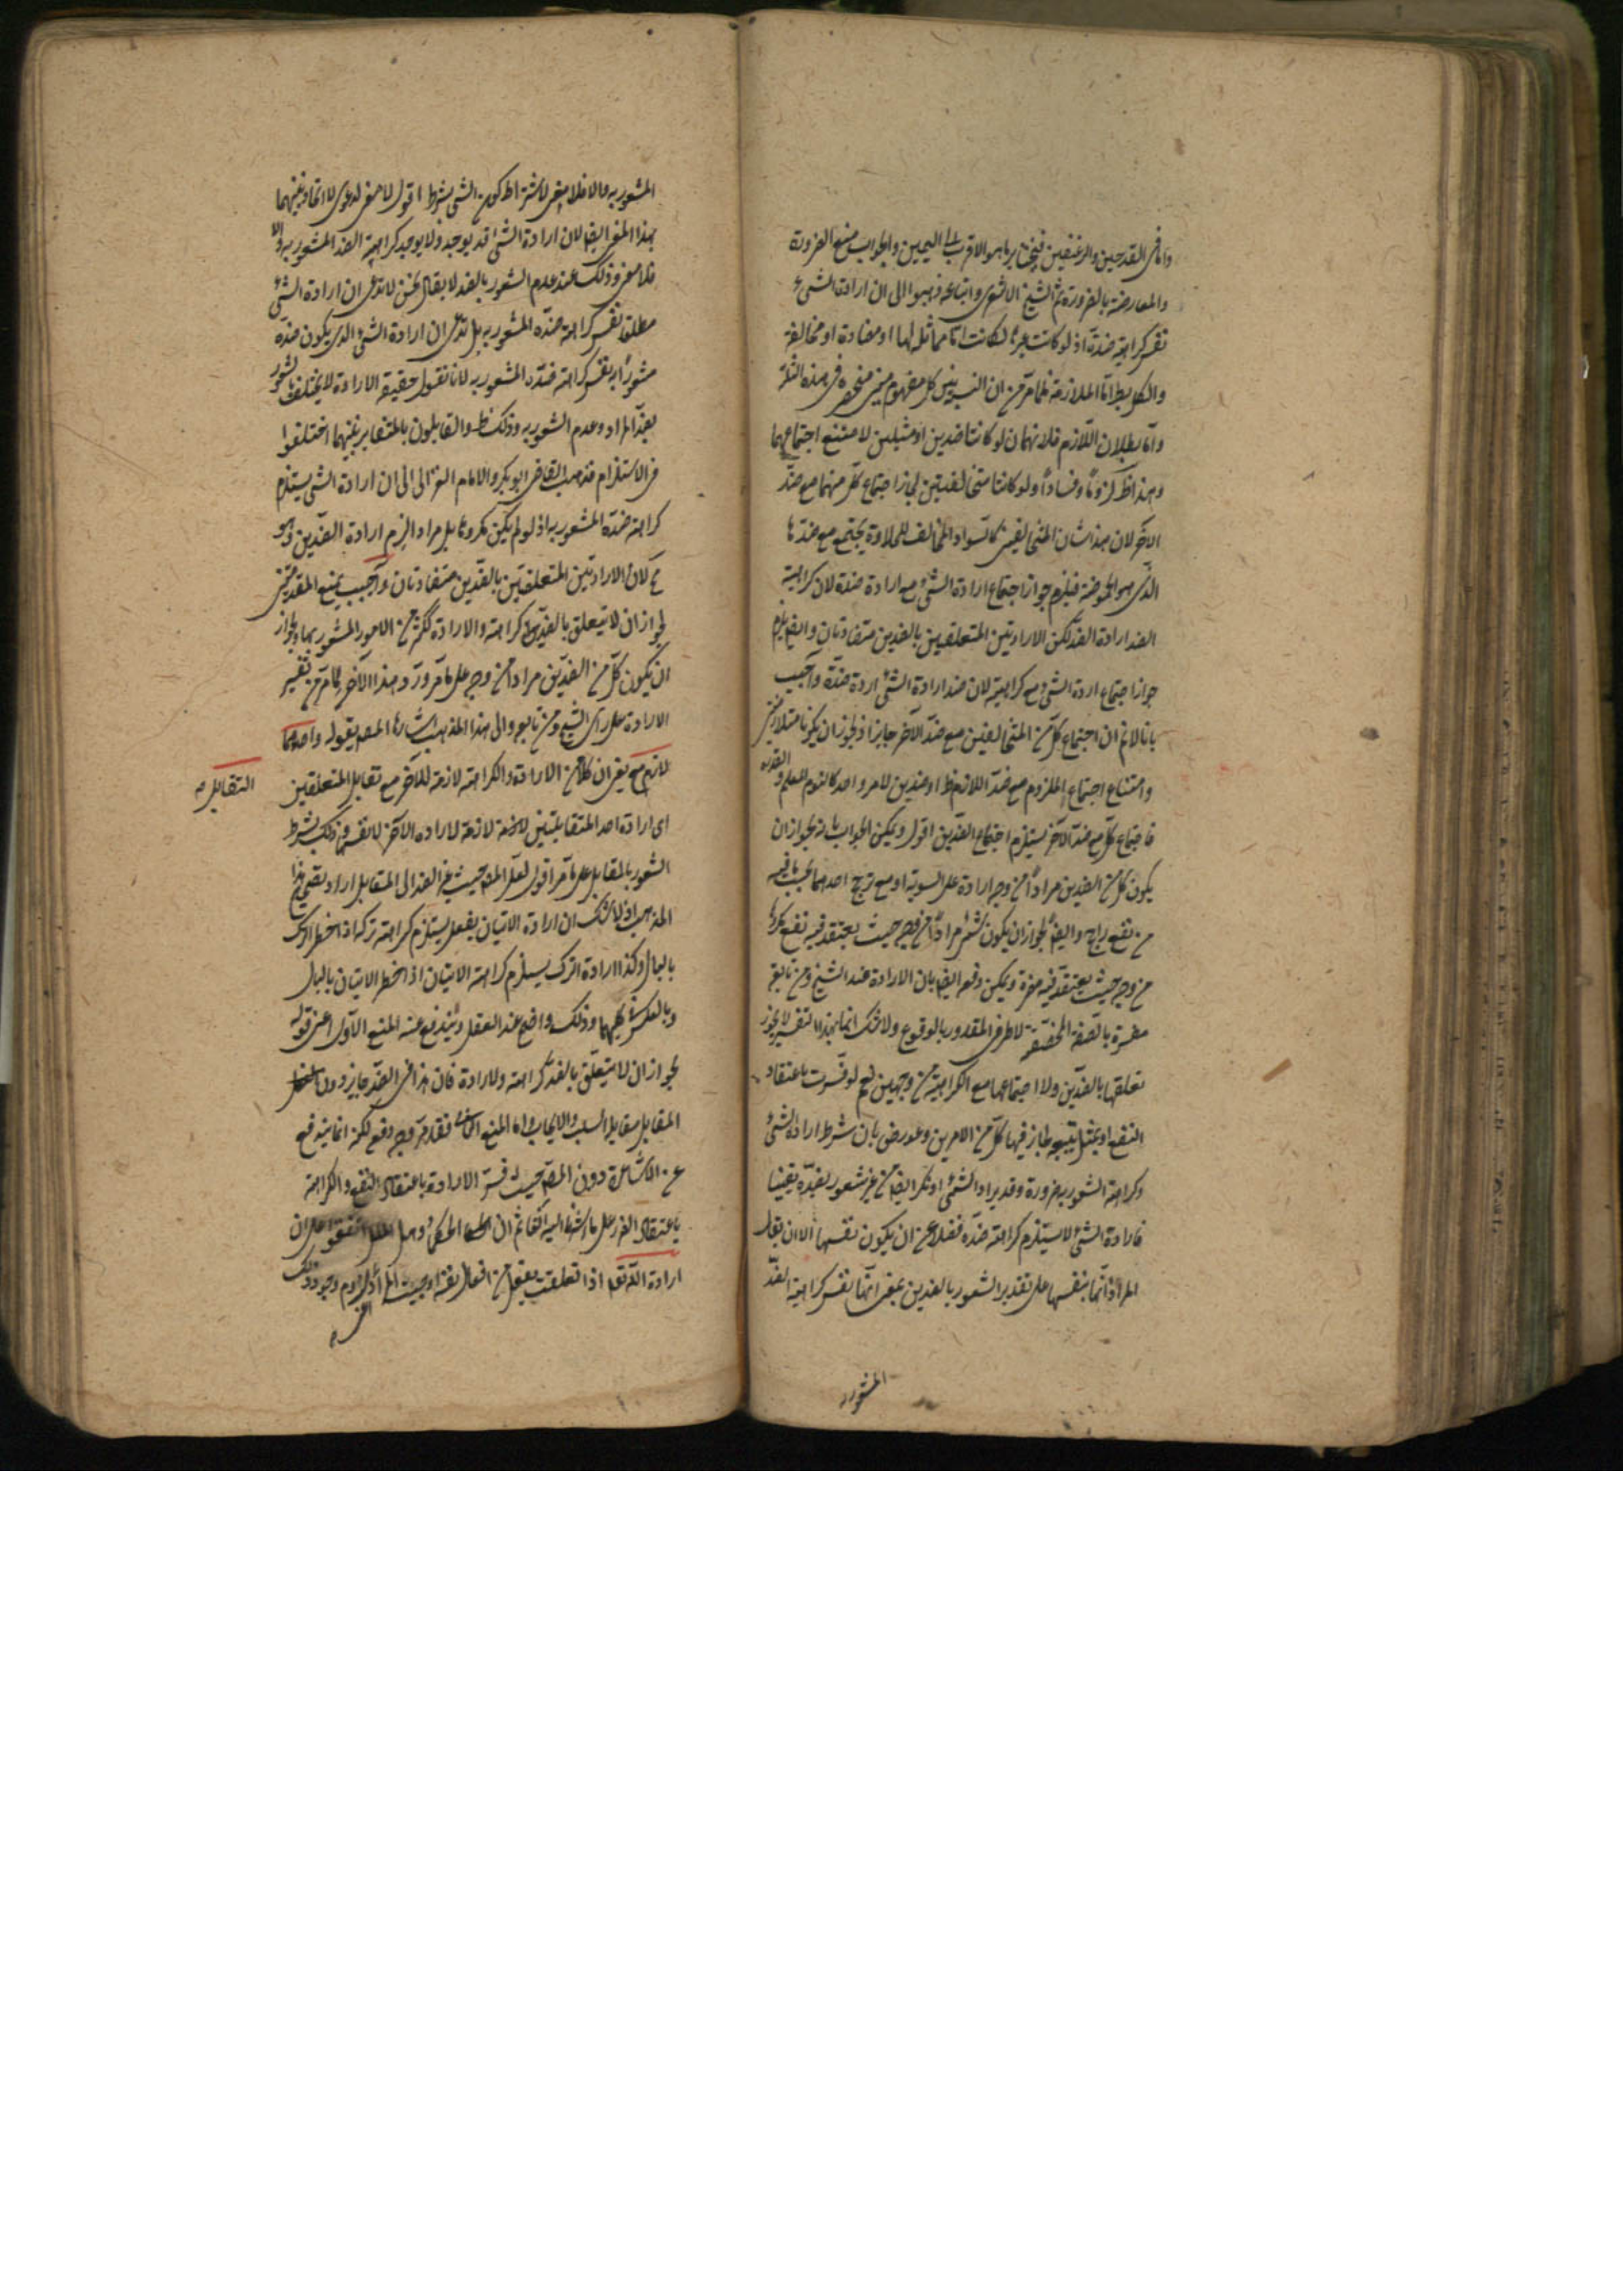 واما فى القدحين والرغيفين فيختار ما هو الاقرب الى اليمين والجواب منع الضرورة
والمعارضة بالضرورة ثم الشيخ الاشعرى واتباعه ذهبوا الى ان ارادة الشئ
نفس كراهية ضده اذ لو كانت غيرها لكانت اما مماثلة لها او مضادة او مخالفة
والكل بط اما الملازمة فلما مر من ان النسبة بين كل مفهومين منحصرة فى هذه الثلثة
واما بطلان اللازم فلانهما لو كانتا ضدين او مثلين لامتنع اجتماعهما
وهذا ظ لزوما وفسادا ولو كانتا متخالفتين لجاز اجتماع كل منهما مع ضد
الآخر لان هذا شان المتخالفين كالسواد المخالف للحلاوة يجتمع مع ضدها
الذى هو الحموضة فيلزم جواز اجتماع ارادة الشئ مع ارادة ضده لان كراهية
الضد ارادة الضد لكن الارادتين المتعلقتين بالضدين متضادتان وايضا يلزم
جواز اجتماع ارادة الشئ مع كراهيته لان ضد ارادة الشئ اردة ضده واجيب
بانا لا نم ان اجتماع كل من المتخالفين مع ضد الآخر جايز اذ يجوز ان يكونا متلازمين
وامتناع اجتماع الملزوم مع ضد اللازم ظ او ضدين لامر واحد كالنوم للعلم والقدرة
فاجتماع كل مع ضد الآخر يستلزم اجتماع الضدين اقول ويمكن الجواب بانه يجوز ان
يكون كل من الضدين مرادا من وجه ارادة على السوية او مع ترجح احدهما بحسب ما فيه
من نفع راجح وايضا يجوز ان يكون شئ مرادا من وجه حيث يعتقد فيه نفع مكروها
من وجه حيث يعتقد فيه مضرة ويمكن دفعه ايضا بان الارادة عند الشيخ ومن تابعه
مفسرة بالصفة المخصصة لاحد طرفى المقدور بالوقوع ولا شك انها بهذا التفسير لا يجوز
تعلقها بالضدين ولا اجتماعها مع الكراهية من وجهين نعم لو فسرت باعتقاد
النفع او بميل يتبعه جاز فيها كل من الامرين وعورض بان شرط ارادة الشئ
وكراهته الشعور به ضرورة وقد يراد الشئ او يكره ايضا من غير شعور بضده يقينا
فارادة الشئ لا يستلزم كراهة ضده فضلا عن ان يكون نفسها الا ان يقال
المراد انها نفسها على تقدير الشعور بالضدين بمعنى انها نفس كراهية الضد
المشعور به
المشعور به والا فلا معنى لاشتراط كون الشئ بشرط اقول لا معنى لدعوى الاتحاد بينهما
بهذا المعنى ايضا لان ارادة الشئ قد يوجد ولا يوجد كراهية الضد المشعور به والا
فلا معنى وذلك عند عدم الشعور بالضد لا يقال نحن لا ندعى ان ارادة الشئ
مطلقا نفس كراهة ضده المشعور به بل ندعى ان ارادة الشئ الذى يكون ضده
مشعورا به نفس كراهة ضده المشعور به لانا نقول حقيقة الارادة لا يختلف بالشعور
بضد المراد وعدم الشعور به وذلك ظ والقايلون بالتغاير بينهما اختلفوا
فى الاستلزام فذهب القاضى ابو بكر والامام الغزالى الى ان ارادة الشئ يستلزم
كراهة ضده المشعور به اذ لو لم يكن مكروها بل مراد الزم ارادة الضدين وهو
مح لان الارادتين المتعلقتين بالضدين متضادتان واجيب بمنع المقدمتين
لجواز ان لا يتعلق بالضد كراهة ولا ارادة ككثير من الامور المشعور بها ولجواز
ان يكون كل من الضدين مرادا من وجه على ما مر ورد هذا الآخر بما مر من تفسير
الارادة على راى الشيخ ومن تابعه والى هذا المذهب اشار المصـ بقوله واحدهما
لازم مع يعنى ان كلا من الارادة والكراهة لازمة للآخر مع تقابل المتعلقين
التقابل
اى ارادة احد المتقابلين لازمة لارادة الآخر لا نفسها وذلك بشرط
الشعور بالمقابل على ما مر اقول لعل المصـ حيث غير الضد الى المقابل اراد تصحيح هذا
المذهب اذ لا شك ان ارادة الاتيان بفعل يستلزم كراهة تركه اذا خطر الترك
بالبال وكذا ارادة الترك يستلزم كراهة الاتيان اذا خطر الاتيان بالبال
وبالعكس كليهما وذلك واضح عند العقل ويندفع عنه المنع الاول اعنى قوله
لجواز ان لا يتعلق بالضد كراهة ولا ارادة فان هذا فى الضد جايز دون
المقابل مقابل السلب والايجاب واما المنع الثانى فقد مر وجه دفعه لكنه انما يندفع
عن الاشاعرة دون المصـ حيث فسر الارادة باعتقاد النفع والكراهة
باعتقاد الضرر على ما اشرنا اليه آنفا ثم ان الحكماء واهل الملل اتفقوا على ان
ارادة الله تعـ اذا تعلقت بفعل من افعال نفسه اوجبت المراد ولزوم وجود ذلك